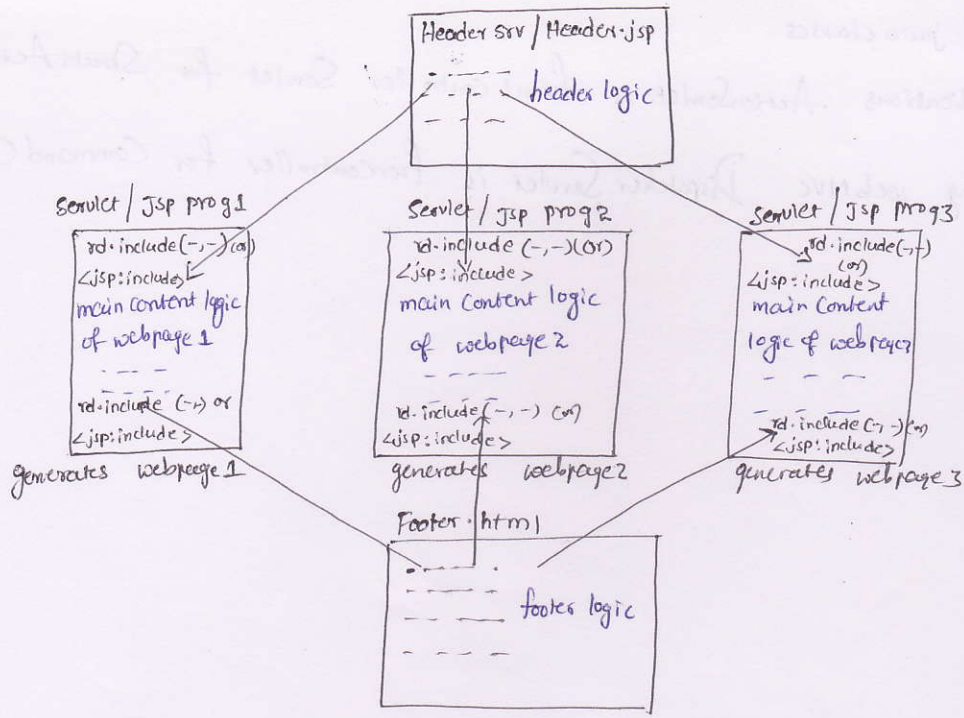 Header srv / Header.jsp
header logic
Servlet / Jsp prog1
rd.include(-,-)(or)
<jsp:include>
main content logic
of webpage 1
rd.include (-,-) or
<jsp:include>
generates webpage 1
Servlet / Jsp prog2
rd.include (-,-)(or)
<jsp:include>
main content logic
of webpage 2
rd.include(-,-) (or)
<jsp:include>
generates webpage2
Servlet / Jsp prog3
rd.include(-,-)
(or)
<jsp:include>
main content
logic of webpage3
rd.include(-,-)(or)
<jsp:include>
generates webpage 3
Footer.html
footer logic